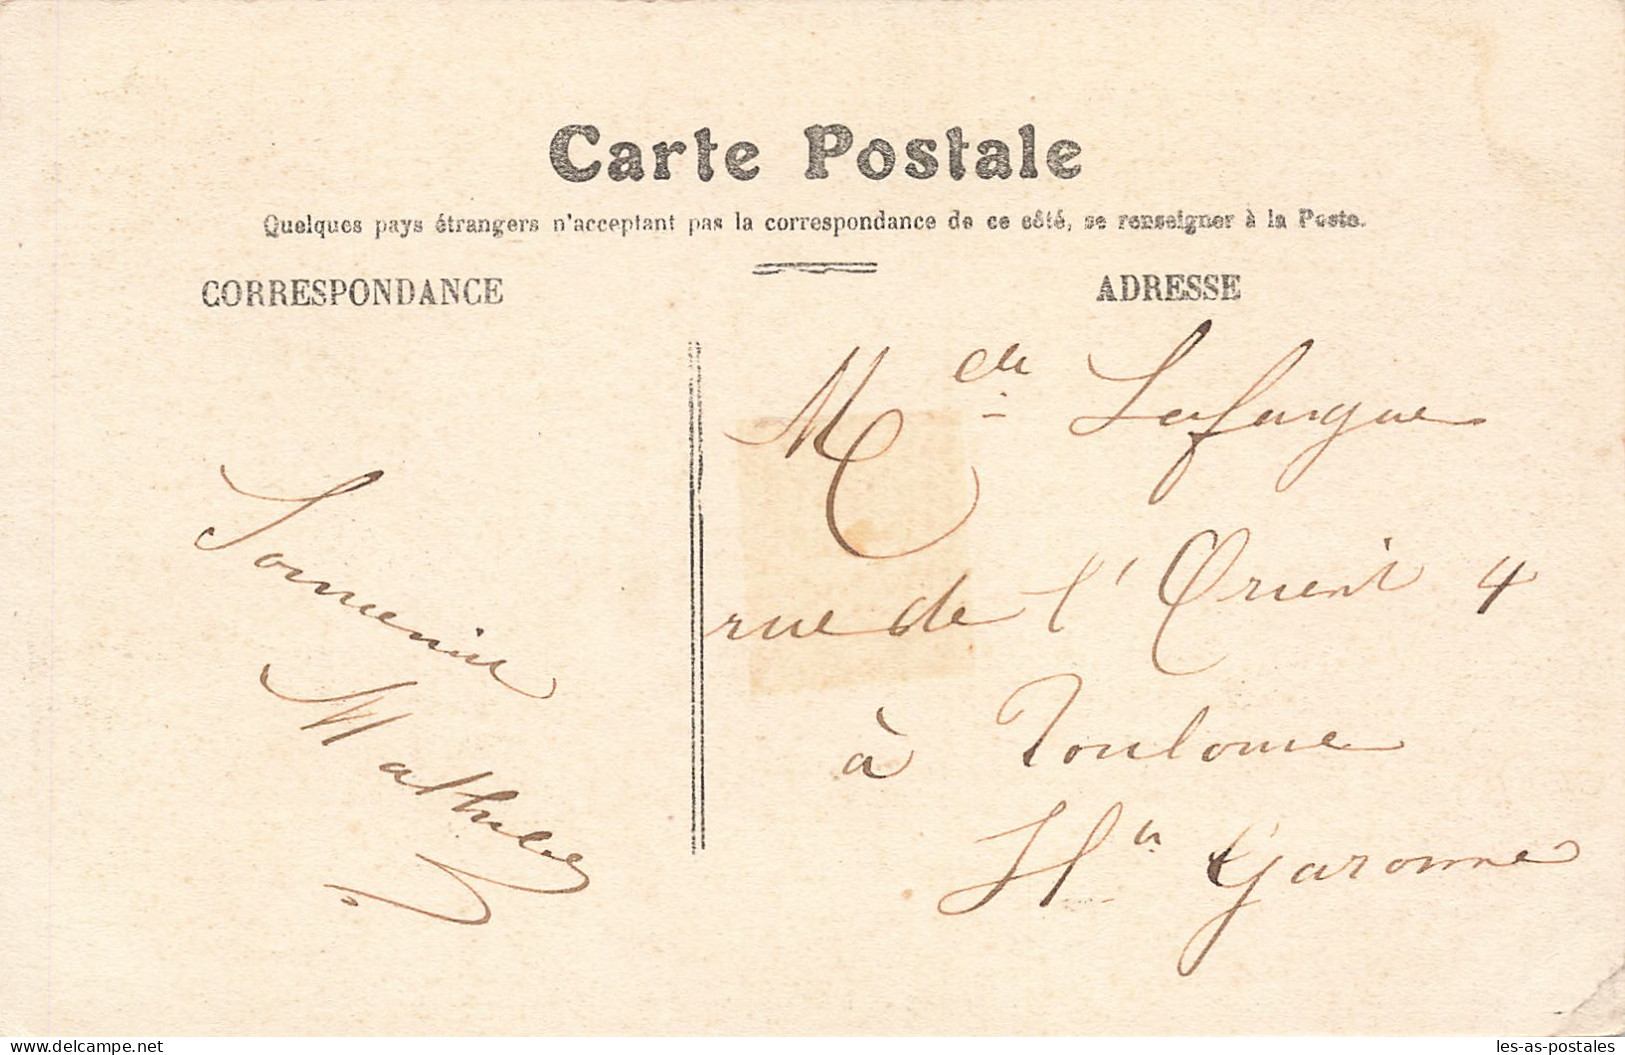 Carte Postale
Quelques pays étrangers n'acceptent pas la correspondance de ce côté, se renseigner à la Poste.
CORRESPONDANCE
ADRESSE
Souvenir
Melle Lafargue
rue de l'Orient 4
à Toulouse
Hte Garonne
delcampe.net
les-as-postales